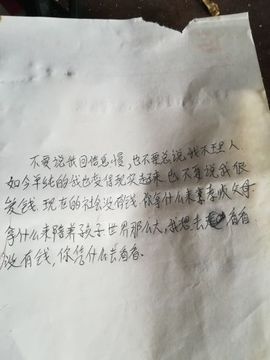 不要说我回信息慢,也不要总说我不理人
如今单纯的我也变得现实起来.也不要说我很
爱钱.现在的社会没有钱.你拿什么来孝顺父母
拿什么来陪养孩子世界那么大,我想去看看
没有钱,你凭什么去看看.